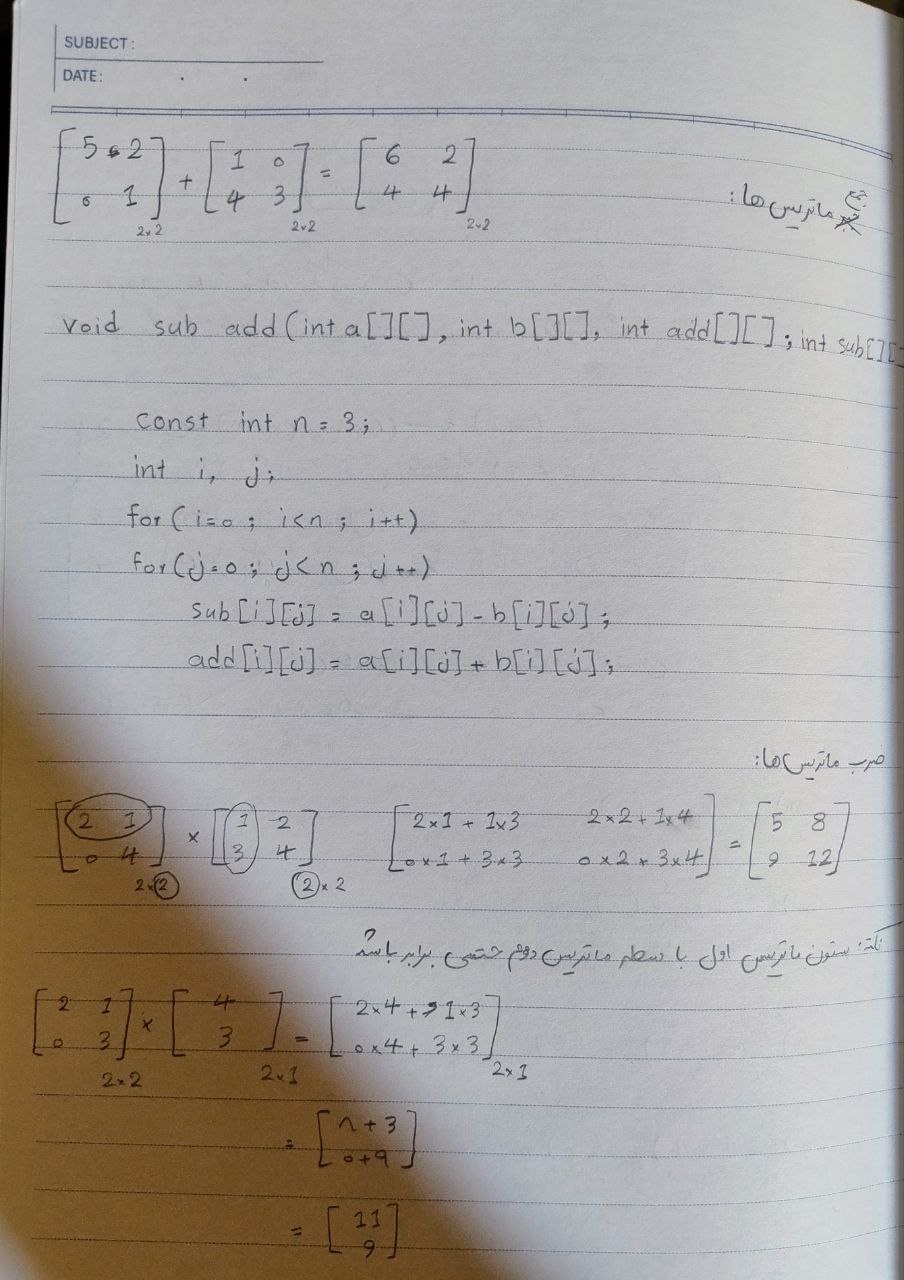 SUBJECT:
DATE: . .
[5 2; 0 1] 2×2 + [1 0; 4 3] 2×2 = [6 2; 4 4] 2×2
جمع ماتریس ها:
void sub add(int a[][], int b[][], int add[][]; int sub[][
const int n = 3;
int i, j;
for(i=0; i<n; i++)
for(j=0; j<n; j++)
sub[i][j] = a[i][j] - b[i][j];
add[i][j] = a[i][j] + b[i][j];
ضرب ماتریس ها:
[2 1; 0 4] 2×2 × [1 2; 3 4] 2×2 [2×1 + 1×3 2×2 + 1×4; 0×1 + 3×3 0×2 + 3×4] = [5 8; 9 12]
نکته: ستون ماتریس اول با سطر ماتریس دوم حتمی برابر باشد
[2 1; 0 3] 2×2 × [4; 3] 2×1 = [2×4 + 1×3; 0×4 + 3×3] 2×1
= [۸+3; 0+9]
= [11; 9]